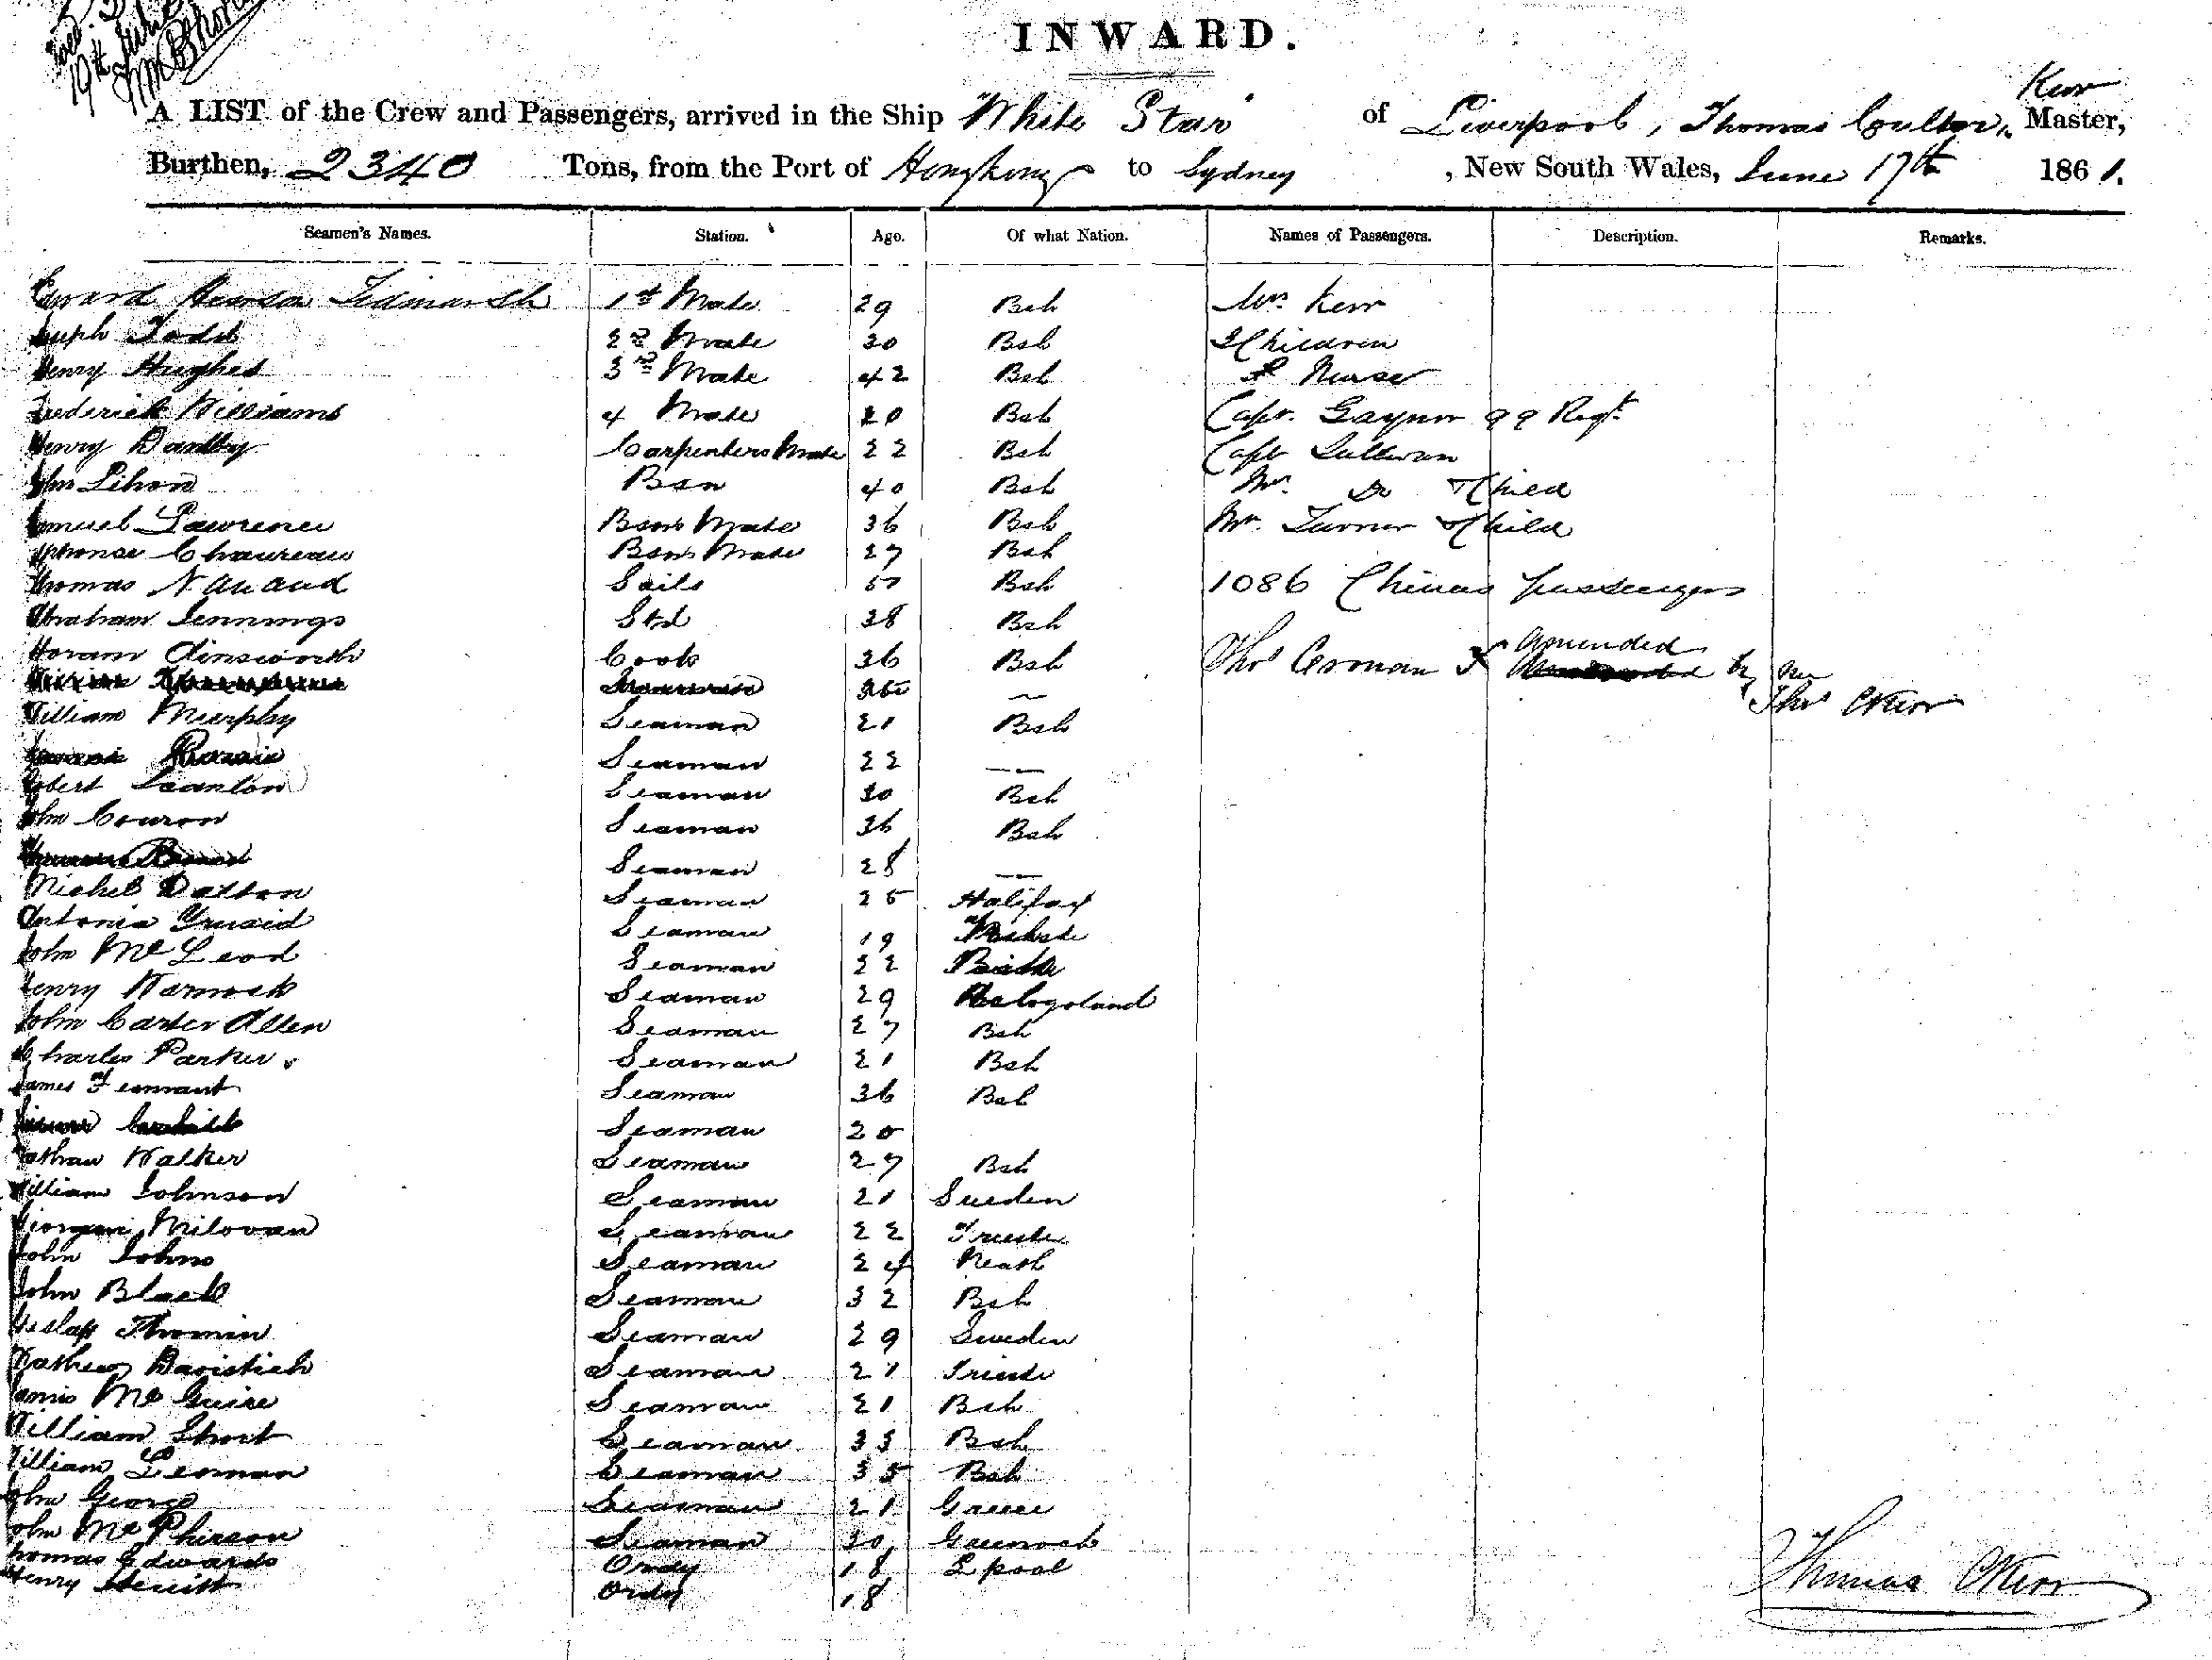 19th June
INWARD.
Kerr
A LIST of the Crew and Passengers, arrived in the Ship White Star of Liverpool, Thomas Coulter Master,
Burthen, 2340 Tons, from the Port of Hongkong to Sydney, New South Wales, June 17th 1861.
Seamen's Names. Station. Age. Of what Nation. Names of Passengers. Description. Remarks.
Edward 1st Mate 29 Bsh Mrs Kerr
Joseph Todd 2nd Mate 30 Bsh 3 Children
Henry Hughes 3rd Mate 42 Bsh & Nurse
Frederick Williams 4 Mate 20 Bsh Capt. Gaynor 99 Regt.
Henry Dandby Carpenters Mate 22 Bsh Capt Sullivan
John Lihon Bsn 40 Bsh Mrs. Do & Child
Samuel Lawrence Bsns Mate 36 Bsh Mrs. Turner & Child
Alphonse Chaureau Bsns Mate 27 Bsh
Thomas Sails Bsh 1086 Chinese passengers
Abraham Jennings Std 38 Bsh
Horam Ainsworth Cook 36 Bsh Thos Cronan amended by me
—
William Murphy Seaman 21 Bsh Thos C Kerr
Seaman 22 —
Robert Scanlon Seaman 30 Bsh
John Couron Seaman 36 Bsh
Seaman 28 —
Michel Dalton Seaman 25 Halifax
Antonia Seaman 19
John McLeod Seaman 22
Henry Warnock Seaman 29 Helogoland
John Carter Allen Seaman 27 Bsh
Charles Parker Seaman 21 Bsh
James Tennant Seaman 36 Bsh
Seaman 20
Nathan Walker Seaman 27 Bsh
William Johnson Seaman 21 Sweden
Milovan Seaman 22 Trieste
John Johns Seaman 24 Neath
John Black Seaman 32 Bsh
Thomin Seaman 29 Sweden
Mathew Baristich Seaman 21 Trieste
James McGuire Seaman 21 Bsh
William Short Seaman 33 Bsh
William Lennon Seaman 35 Bsh
John George Seaman 21
John McPhirson Seaman 30 Greenock
Thomas Edwards Ordy 18 Lpool
Henry Hewitt Ordy 18
Thomas C Kerr